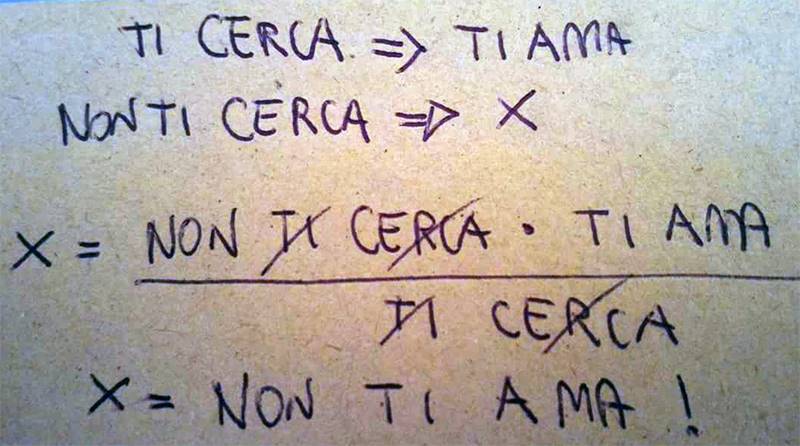 TI CERCA => TI AMA
NON TI CERCA => X
X = NON TI CERCA · TI AMA
TI CERCA
X = NON TI AMA!